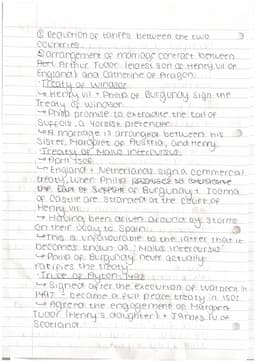 ① Reduction of tariffs between the two
countries
② arrangement of marriage contract between
Arthur Tudor (eldest son of Henry VII of
England) and Catherine of Aragon.
Treaty of Windsor
→ Henry VII + Philip of Burgundy sign the
Treaty of Windsor
→ Philip promise to extradite the Earl of
Suffolk, a Yorkist pretender
→ A marriage is arranged between his
sister, Margaret of Austria, and Henry.
Treaty of Malus Intercursus
→ April 1506
→ England + Netherlands sign a commercial
treaty, when Philip
of Burgundy + Joanna
of Castile are stranded at the court of
Henry VII.
→ Having been driven around by storms
on their way to Spain.
→ This is unfavourable to the latter that it
becomes known as 'Malus Intercursus'
→ Philip of Burgundy never actually
ratifies the treaty.
Truce of Ayton, 1497
→ Signed after the execution of Warbeck in
1497 + became a full peace treaty in 1502
→ Agreed the engagement of Margaret
Tudor (Henry's daughter) + James IV of
Scotland.